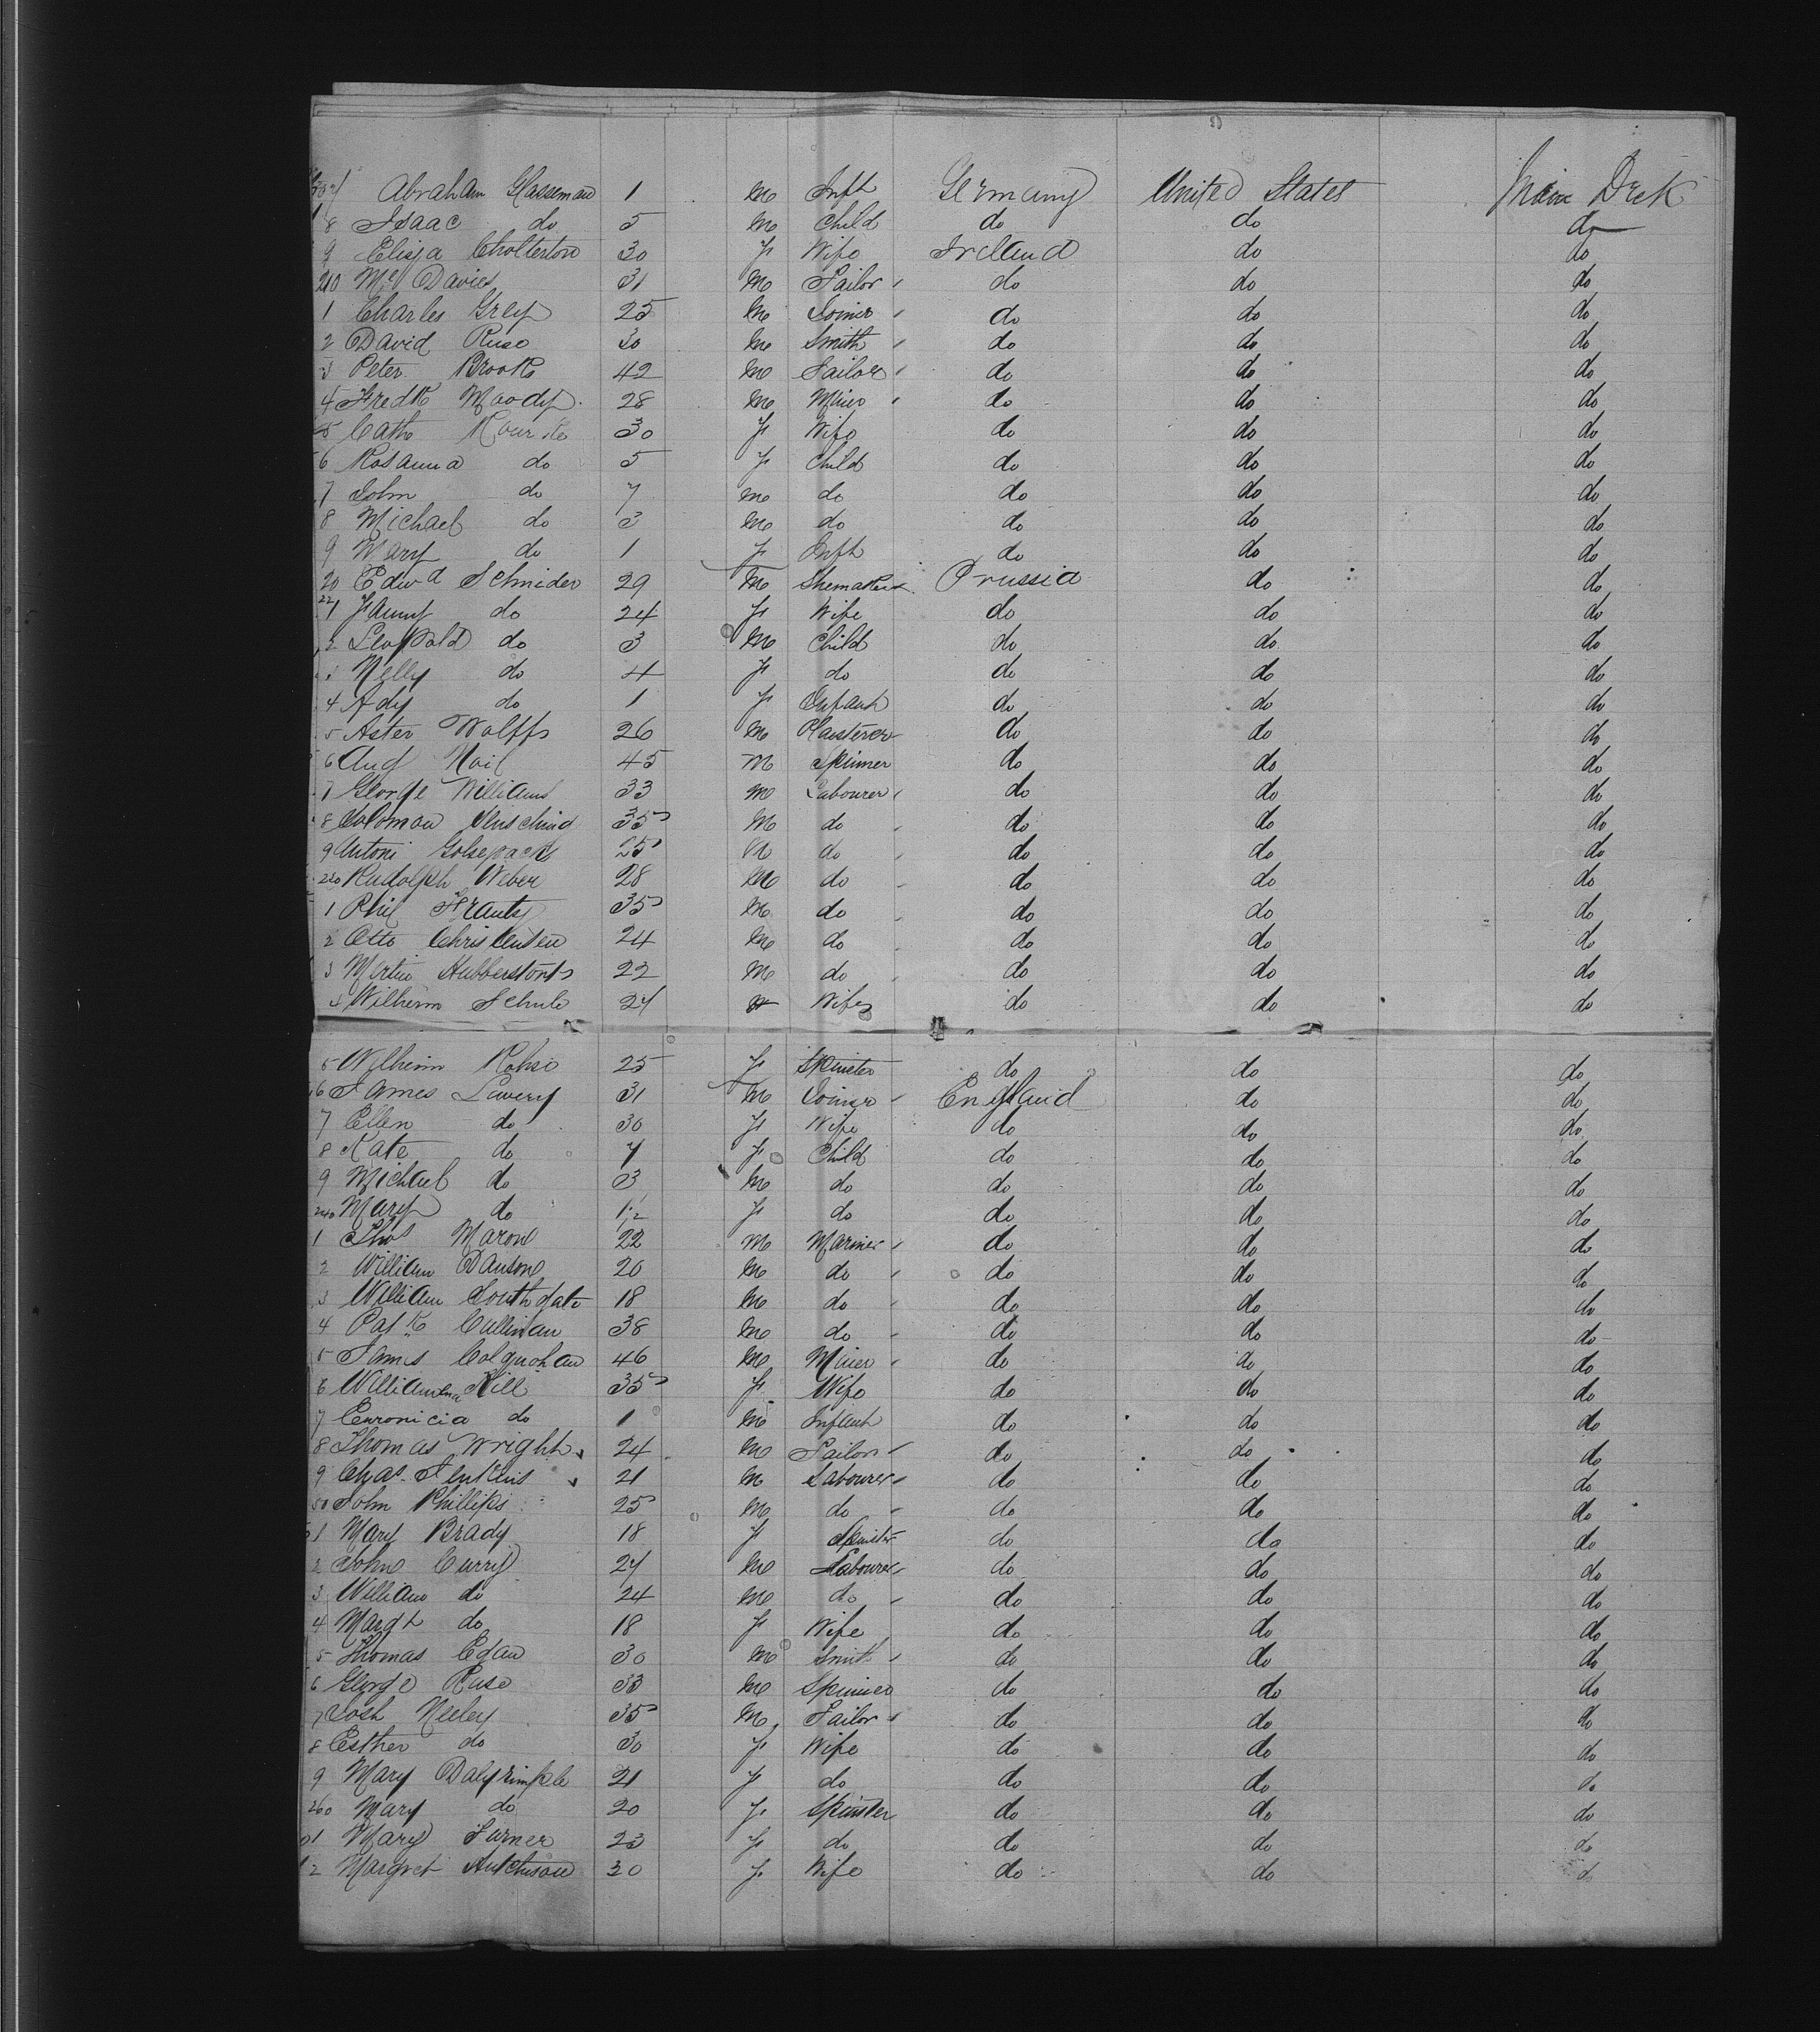 207 Abraham Glasseman 1 m Inft Germany United States Main Deck
8 Isaac do 5 m Child do do do
9 Eliza Cholterton 30 f Wife Ireland do do
210 Mc Davies 31 m Tailor do do do
1 Charles Grey 25 m Joiner do do do
2 David Ruse 30 m Smith do do do
3 Peter Brooks 42 m Sailor do do do
4 Fredk Moody 28 m Miner do do do
5 Cath 30 f Wife do do do
6 Rosanna do 5 f Child do do do
7 John do 7 m do do do do
8 Michael do 3 m do do do do
9 Mary do 1 f Inft do do do
20 Edwd Schnider 29 m Shemaker Prussia do do
221 Fanny do 24 f Wife do do do
2 Leopold do 3 m Child do do do
3 Nelly do 4 f do do do do
4 Ady do 1 f Infant do do do
5 Aster Wolffs 26 m Plasterer do do do
6 Aug Noil 45 m Spinner do do do
7 George Williams 33 m Labourer do do do
8 Soloman 35 m do do do do
9 Antoni 25 m do do do do
230 Rudolph Weber 28 m do do do do
1 Phil Frantz 35 m do do do do
2 Otto Christensen 24 m do do do do
3 Martin Hubberstonts 22 m do do do do
4 Wilhelm Schule 24 Wife do do do
5 Wilheim Rohse 25 f Spinster do do do
6 James Lavery 31 m Joiner England do do
7 Ellen do 30 f Wife do do do
8 Kate do 7 f Child do do do
9 Michael do 3 m do do do do
240 Mary do f do do do do
1 Thos Marone 22 m Mariner do do do
2 William Dansone 20 m do do do do
3 William Southgate 18 m do do do do
4 Patk Cullinan 38 m do do do do
5 James Colquohan 46 m Miner do do do
6 Williamena Hill 35 f Wife do do do
7 Euronicia do 1 m Infant do do do
8 Thomas Wright 24 m Tailor do do do
9 Chas Jenkins 21 m Labourer do do do
50 John Phillips 25 m do do do do
1 Mary Brady 18 f Spinster do do do
2 John Curry 27 m Labourer do do do
3 William do 24 m do do do do
4 Margt do 18 f Wife do do do
5 Thomas Egan 30 m Smith do do do
6 George Ruse 33 m Spinner do do do
7 Josh Neeley 35 m Tailor do do do
8 Esther do 30 f Wife do do do
9 Mary Dalyrimple 21 f do do do do
260 Mary do 20 f Spinster do do do
1 Mary Turner 23 f do do do do
2 Margret Hutchison 30 f Wife do do do